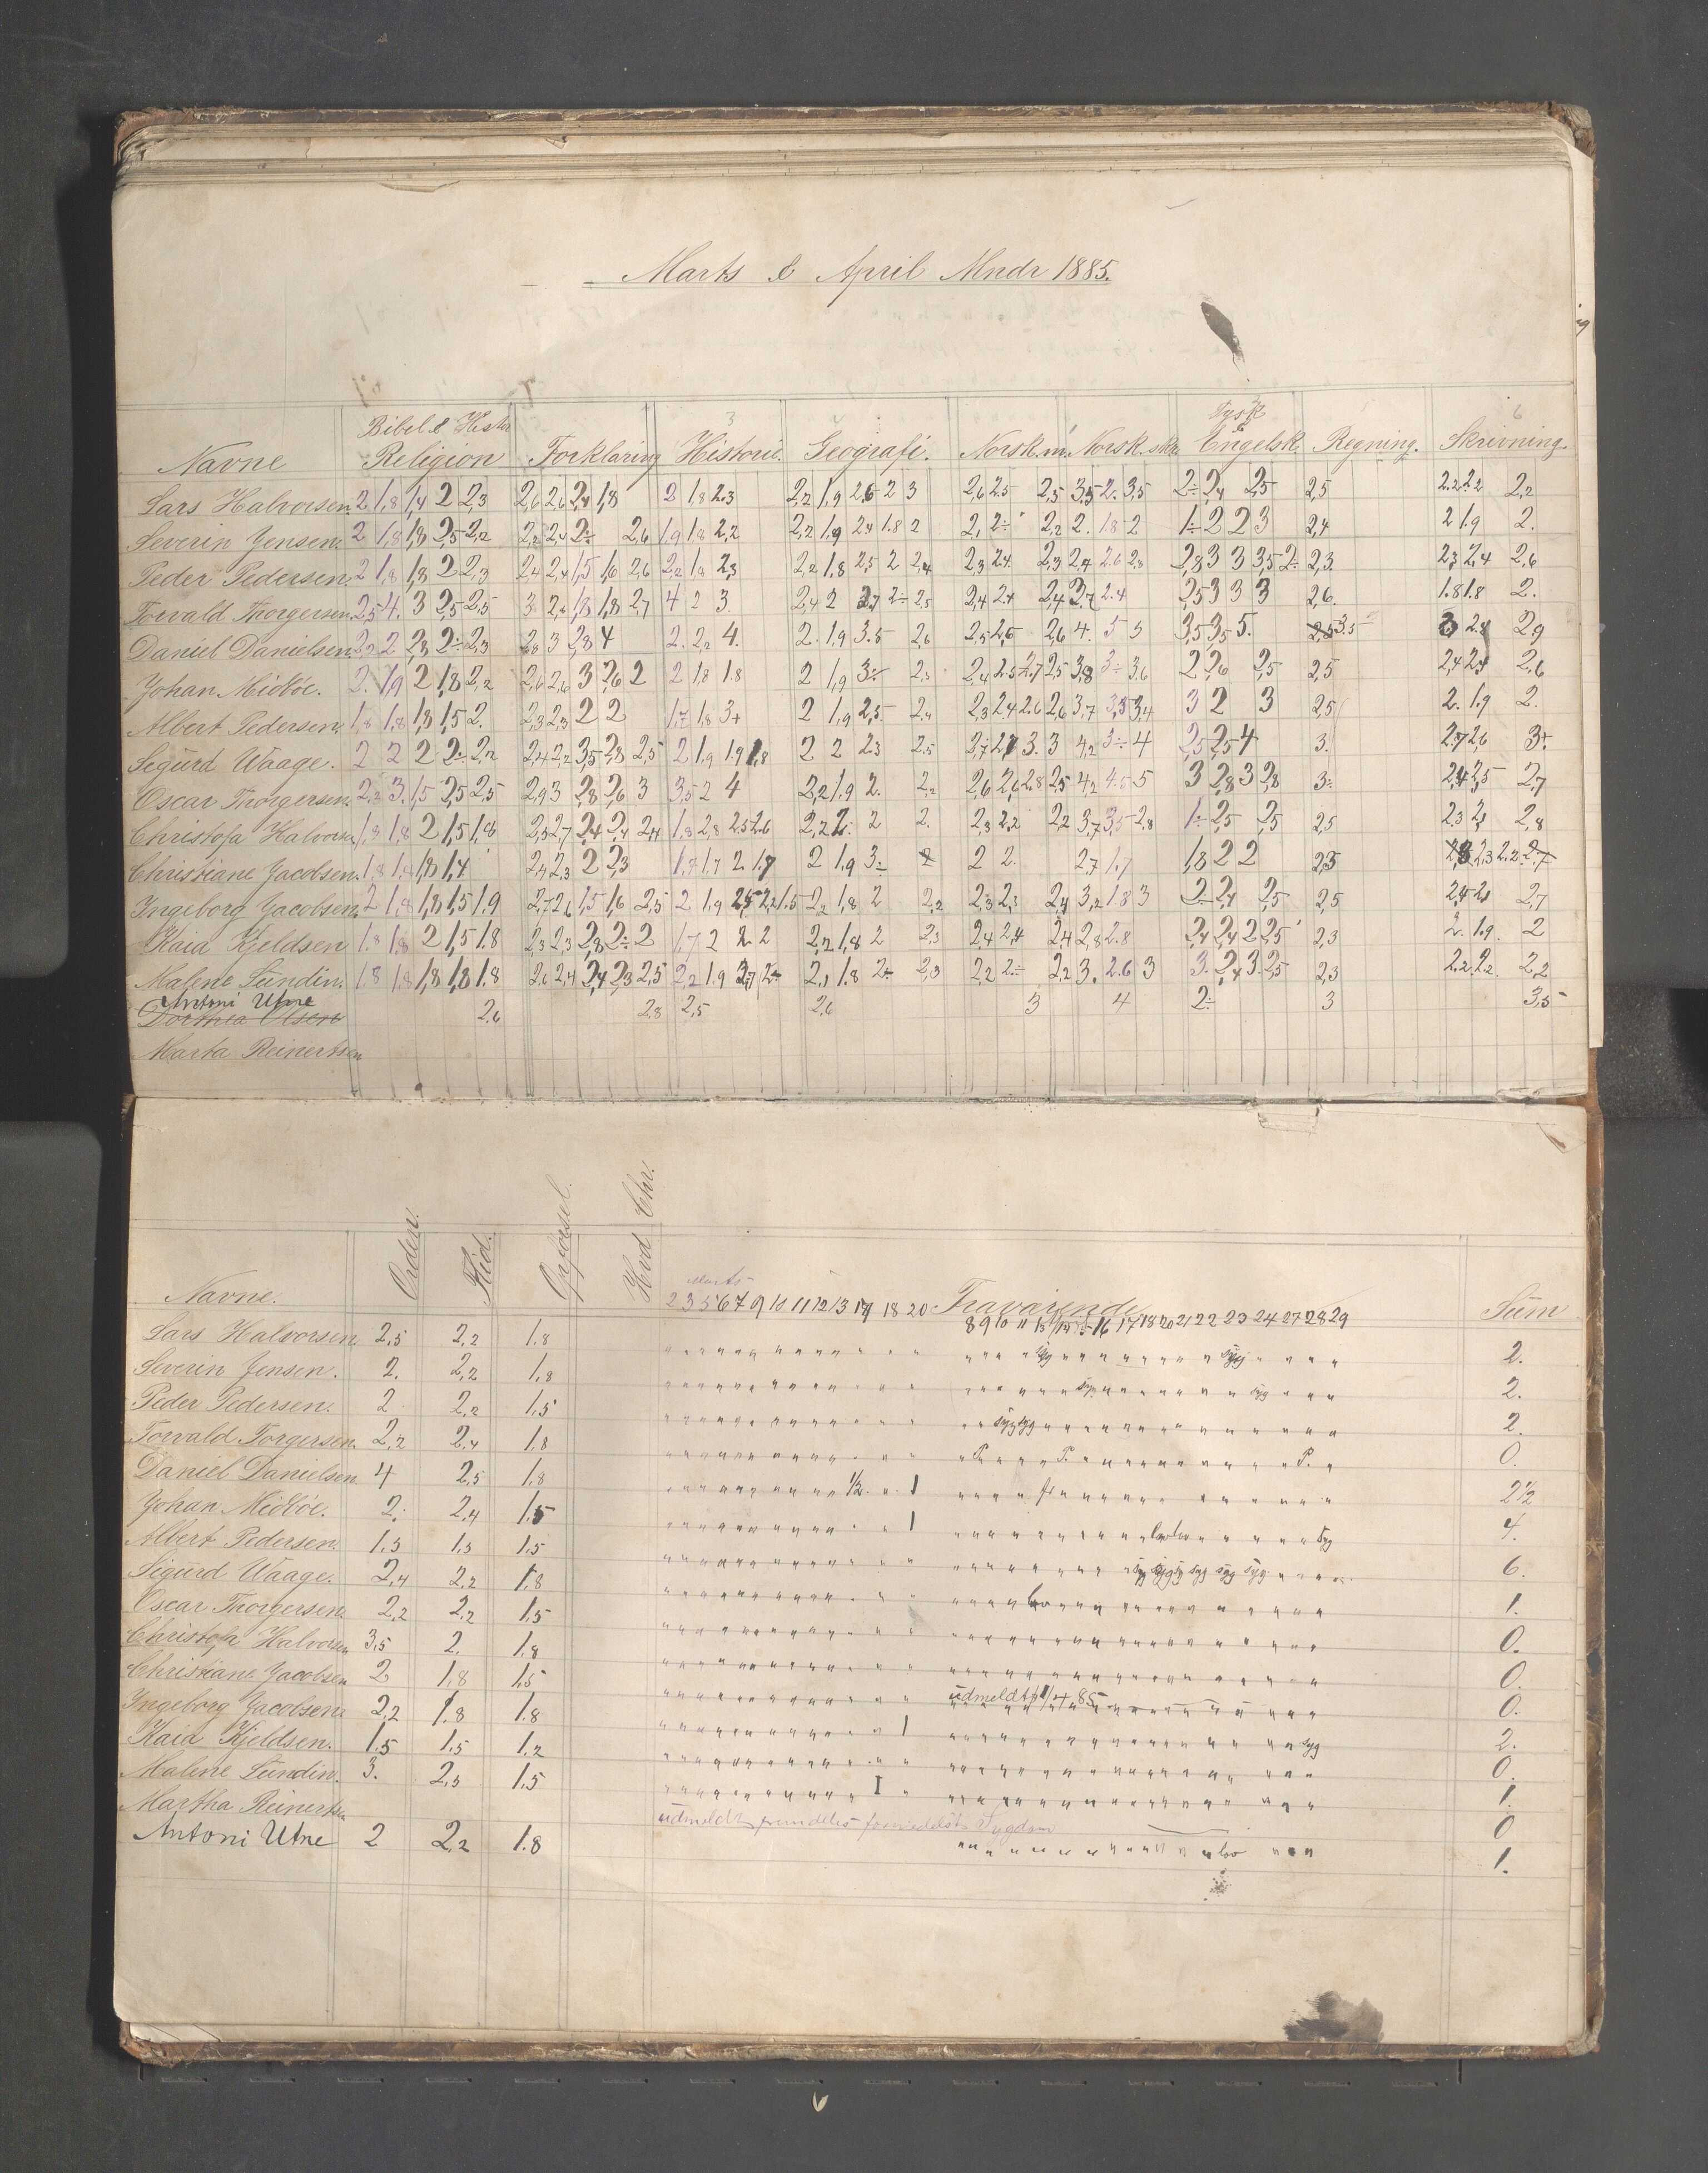 Marts & April Mndr 1885.
Navne Bibel & Hist. Religion Forklaring Historie. Geografi. Norsk.m. Norsk.skr. Tysk & Engelsk Regning. Skrivning.
Lars Halvorsen. 2 1,8 1,4 2 2,3 2,6 2,6 2,4 1,8 2 1,8 2.3 2,2 1,9 2,6 2 3 2,6 2.5 2,5 3,5 2. 3,5 2÷ 2,4 2,5 2,5 2.2 2.2 2,2
Severin Jensen. 2 1,8 1,8 2,5 2,2 2,2 2,4 2÷ 2,6 1,9 1,8 2,2 2,2 1,9 2,4 1.8 2 2, 2÷ 2,2 2. 1.8 2 1÷ 2 2 3 2,4 2 1.9 2.
Peder Pedersen. 2 1,8 1,8 2 2,3 2,4 2,4 1,5 1,6 2,6 2,2 1,8 2,3 2,2 1,8 2,5 2 2,4 2,3 2,4. 2,3 2,4 2.6 2,8 2,8 3 3 3,5 2÷ 2,3 2,3 2,4 2,6
Torvald Thorgersen. 2,5 4. 3 2,5 2,5 3 2,2 1,8 1,8 2,7 4 2 3. 2,4 2 2,7 2÷ 2,5 2,4 2,4 2,4 3,7 2.4 2,5 3 3 3 2,6. 1.8 1.8 2.
Daniel Danielsen. 2,2 2 2,8 2÷ 2,3 2,8 3 2,8 4 2. 2,2 4. 2. 1,9 3.5 2,6 2,5 2,5 2,6 4. 5 5 3,5 3,5 5. 3.5 3 2.8 2,9
Johan Midbøe. 2. 1,9 2 1,8 2,2 2,6 2,6 3 2,6 2 2 1,8 1.8 2 1,9 3÷ 2,3 2,4 2.5 2.7 2,5 3,8 3÷ 3,6 2 2,6 2,5 2,5 2,4 2,4 2,6
Albert Pedersen. 1,8 1,8 1,8 1,5 2. 2,3 2,3 2 2 1,7 1,8 3+ 2 1,9 2,5. 2,4 2,3 2,4 2.6 2,6 3,7 3,5 3,4 3 2 3 2,5 2. 1.9 2.
Sigurd Waage. 2 2 2 2÷ 2,2 2,4 2,2 3,5 2,8 2,5 2 1,9 1.9 1,8 2 2 2.3 2,5 2,7 2,7 3. 3 4,2 3÷ 4 2,5 2,5 4 3. 2.7 2,6 3+.
Oscar Thorgersen. 2,3 3. 1,5 2,5 2,5 2,9 3 2,8 2,6 3 3,5 2 4 2,2 1.9 2. 2,2 2,6 2,6 2.8 2,5 4,2 4.5 5 3 2,8 3 2,8 3÷ 2,4 2,5 2,7
Christofa Halvorsen 1,8 1,8 2 1,5 1,8 2,5 2,7 2,4 2,4 2,4 1,8 2,8 2.5 2.6 2,2 2. 2 2. 2,3 2,2 2,2 3,7 3,5 2,8 1÷ 2,5 2,5 2,5 2.3 2, 2,8
Christiane Jacobsen. 1,8 1,4 1,8 1,4 2,4 2,3 2 2,3 1,7 1,7 2 1.7 2 1,9 3÷ 2 2 2. 2,7 1,7 1,8 2 2 2,5 2,3 2.2 2,7
Ingeborg Jacobsen. 2 1,8 1,8 1,5 1.9 2,7 2,6 1,5 1,6 2,5 2 1.9 2,5 2,2 1.5 2,2 1,8 2 2,2 2,3 2,3 2,4 3,2 1,8 3 2÷ 2,4 2,5 2,5 2,4 2, 2,7
Kaia Kjeldsen 1.8 1,8 2 1,5 1.8 2,3 2,3 2,8 2÷ 2 1,7 2 2. 2 2,2 1,8 2 2,3 2,4 2,4 2,4 2,8 2.8 2,4 2,4 2 2,5 2,3 2. 1.9. 2
Malene Sundin. 1.8 1,8 1,8 1,8 1.8 2,6 2,4 2,4 2,3 2,5 2,2 1.9 3,7 2÷ 2,1 1.8 2÷ 2,3 2,2 2÷ 2,2 3. 2.6 3 3. 2,4 3. 2,5 2,3 2.2 2,2. 2,2
Antoni Utne 2,6 2,8 2,5 2,6 3 4 2÷ 3 3,5
Dorthea Olsen
Marta Reinertsen
Navne. Orden. Flid. Opførsel. Hvd Chr. Fraværende Sum
Marts
2 3 5 6 7 9 10 11 12 13 17 18 20
8 9 10 11 13 14 15 16 17 18 20 21 22 23 24 27 28 29
Lars Halvorsen 2,5 2,2 1,8 syg syg 2.
Severin Jensen. 2. 2,2 1,8 syg syg 2.
Peder Pedersen. 2 2,2 1,5 syg syg 2.
Torvald Torgersen. 2,2 2,4 1,8 P. P. P. 0.
Daniel Danielsen 4 2,5 1,8 1/2 1 fr 2 1/2
Johan Midbøe. 2. 2,4 1.5 1 syg 4.
Albert Pedersen. 1.3 1,3 1,5 syg syg syg syg syg syg 6.
Sigurd Waage. 2,4 2,2 1,8 1.
Oscar Thorgersen. 2,2 2,2 1,5 0.
Christofa Halvorsen 3,5 2. 1,8 0.
Christiane Jacobsen 2 1,8 1,5 udmeldt 11/4 85 0.
Ingeborg Jacobsen. 2,2 1.8 1.8 1 syg 2.
Kaia Kjeldsen. 1.5 1,5 1,2 0.
Malene Sundin. 3. 2,3 1,5 1 1.
Martha Reinertsen udmeldt fremdeles formedelst Sygdom 0
Antoni Utne 2 2,2 1.8 1.